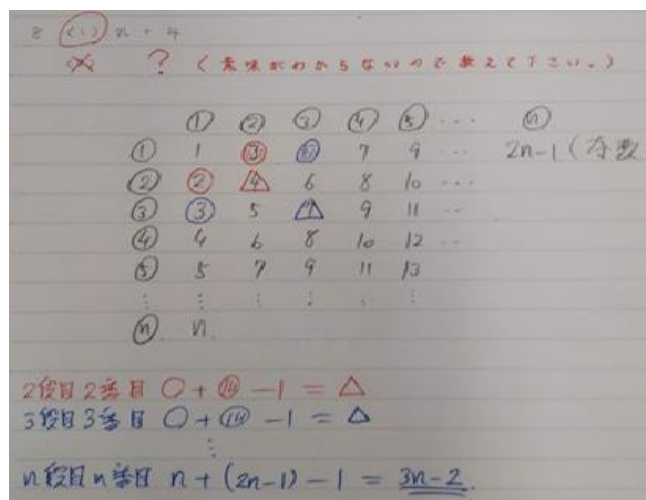 8 (1) n + 4
? (意味がわからないので教えて下さい。)
① ② ③ ④ ⑤ ... ⓝ
① 1 3 5 7 9 ... 2n-1 (奇数
② 2 4 6 8 10 ...
③ 3 5 7 9 11 ...
④ 4 6 8 10 12 ...
⑤ 5 7 9 11 13
⋮ ⋮ ⋮ ⋮ ⋮ ⋮
ⓝ n
2段目2番目 ○ + -1 = △
3段目3番目 ○ + -1 = △
⋮
n段目n番目 n + (2n-1) -1 = 3n-2.